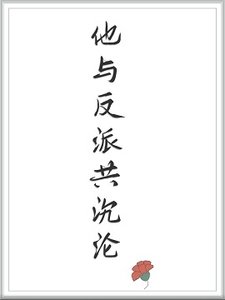 他与反派共沉沦